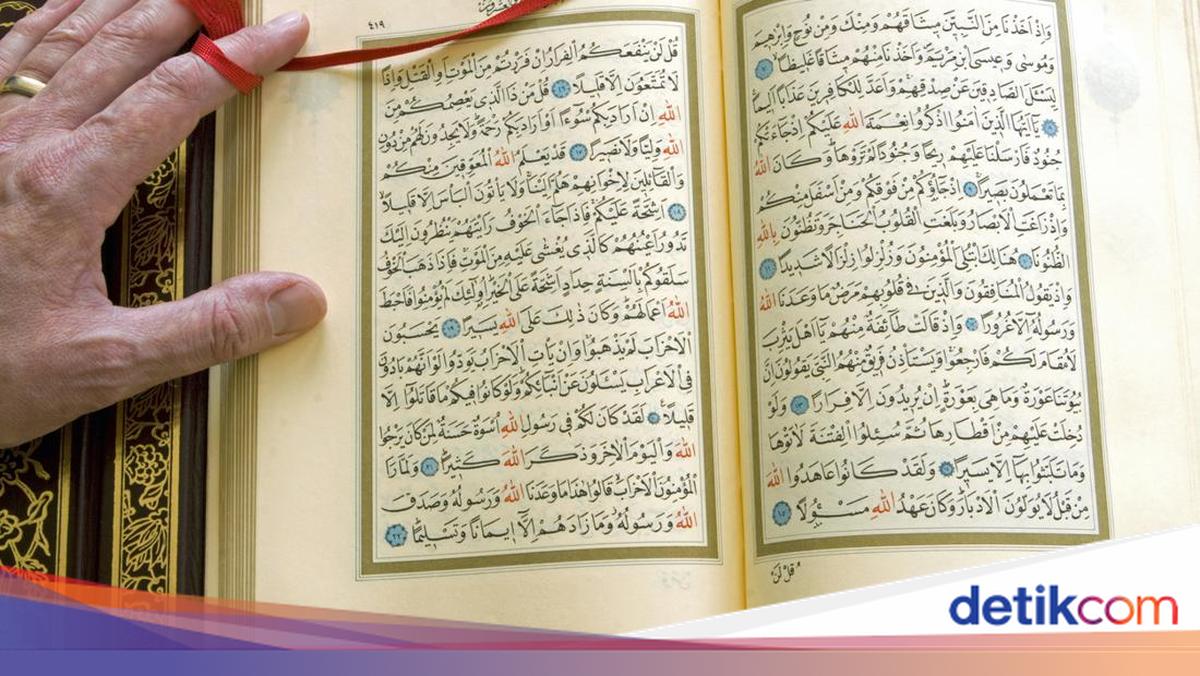 وَاِذْ اَخَذْنَا مِنَ النَّبِيّنَ مِيثَاقَهُمْ وَمِنْكَ وَمِنْ نُوحٍ وَاِبْرٰهِيمَ
وَمُوسٰى وَعِيسَى ابْنِ مَرْيَمَ وَاَخَذْنَا مِنْهُمْ مِيثَاقًا غَلِيظًا ٧
لِيَسْئَلَ الصَّادِقِينَ عَنْ صِدْقِهِمْ وَاَعَدَّ لِلْكَافِرِينَ عَذَابًا اَلِيمًا
٨ يَا اَيُّهَا الَّذِينَ اٰمَنُوا اذْكُرُوا نِعْمَةَ اللّٰهِ عَلَيْكُمْ اِذْ جَاءَتْكُمْ
جُنُودٌ فَاَرْسَلْنَا عَلَيْهِمْ رِيحًا وَجُنُودًا لَمْ تَرَوْهَا وَكَانَ اللّٰهُ
بِمَا تَعْمَلُونَ بَصِيرًا ٩ اِذْ جَاؤُكُمْ مِنْ فَوْقِكُمْ وَمِنْ اَسْفَلَ مِنْكُمْ
وَاِذْ زَاغَتِ الْاَبْصَارُ وَبَلَغَتِ الْقُلُوبُ الْحَنَاجِرَ وَتَظُنُّونَ بِاللّٰهِ
الظُّنُونَا ١٠ هُنَالِكَ ابْتُلِيَ الْمُؤْمِنُونَ وَزُلْزِلُوا زِلْزَالًا شَدِيدًا ١١
وَاِذْ يَقُولُ الْمُنَافِقُونَ وَالَّذِينَ فِي قُلُوبِهِمْ مَرَضٌ مَا وَعَدَنَا اللّٰهُ
وَرَسُولُهُ اِلَّا غُرُورًا ١٢ وَاِذْ قَالَتْ طَائِفَةٌ مِنْهُمْ يَا اَهْلَ يَثْرِبَ
لَا مُقَامَ لَكُمْ فَارْجِعُوا وَيَسْتَأْذِنُ فَرِيقٌ مِنْهُمُ النَّبِيَّ يَقُولُونَ اِنَّ
بُيُوتَنَا عَوْرَةٌ وَمَا هِيَ بِعَوْرَةٍ اِنْ يُرِيدُونَ اِلَّا فِرَارًا ١٣ وَلَوْ
دُخِلَتْ عَلَيْهِمْ مِنْ اَقْطَارِهَا ثُمَّ سُئِلُوا الْفِتْنَةَ لَاٰتَوْهَا
وَمَا تَلَبَّثُوا بِهَا اِلَّا يَسِيرًا ١٤ وَلَقَدْ كَانُوا عَاهَدُوا اللّٰهَ
مِنْ قَبْلُ لَا يُوَلُّونَ الْاَدْبَارَ وَكَانَ عَهْدُ اللّٰهِ مَسْؤُلًا ١٥
قُلْ لَنْ
٤١٩
قُلْ لَنْ يَنْفَعَكُمُ الْفِرَارُ اِنْ فَرَرْتُمْ مِنَ الْمَوْتِ اَوِ الْقَتْلِ وَاِذًا
لَا تُمَتَّعُونَ اِلَّا قَلِيلًا ١٦ قُلْ مَنْ ذَا الَّذِي يَعْصِمُكُمْ مِنَ
اللّٰهِ اِنْ اَرَادَ بِكُمْ سُوءًا اَوْ اَرَادَ بِكُمْ رَحْمَةً وَلَا يَجِدُونَ لَهُمْ مِنْ دُونِ
اللّٰهِ وَلِيًّا وَلَا نَصِيرًا ١٧ قَدْ يَعْلَمُ اللّٰهُ الْمُعَوِّقِينَ مِنْكُمْ
وَالْقَائِلِينَ لِاِخْوَانِهِمْ هَلُمَّ اِلَيْنَا وَلَا يَأْتُونَ الْبَأْسَ اِلَّا قَلِيلًا
١٨ اَشِحَّةً عَلَيْكُمْ فَاِذَا جَاءَ الْخَوْفُ رَاَيْتَهُمْ يَنْظُرُونَ اِلَيْكَ
تَدُورُ اَعْيُنُهُمْ كَالَّذِي يُغْشٰى عَلَيْهِ مِنَ الْمَوْتِ فَاِذَا ذَهَبَ الْخَوْفُ
سَلَقُوكُمْ بِاَلْسِنَةٍ حِدَادٍ اَشِحَّةً عَلَى الْخَيْرِ اُولٰئِكَ لَمْ يُؤْمِنُوا فَاَحْبَطَ
اللّٰهُ اَعْمَالَهُمْ وَكَانَ ذٰلِكَ عَلَى اللّٰهِ يَسِيرًا ١٩ يَحْسَبُونَ
الْاَحْزَابَ لَمْ يَذْهَبُوا وَاِنْ يَأْتِ الْاَحْزَابُ يَوَدُّوا لَوْ اَنَّهُمْ بَادُونَ
فِي الْاَعْرَابِ يَسْئَلُونَ عَنْ اَنْبَائِكُمْ وَلَوْ كَانُوا فِيكُمْ مَا قَاتَلُوا اِلَّا
قَلِيلًا ٢٠ لَقَدْ كَانَ لَكُمْ فِي رَسُولِ اللّٰهِ اُسْوَةٌ حَسَنَةٌ لِمَنْ كَانَ يَرْجُوا
اللّٰهَ وَالْيَوْمَ الْاٰخِرَ وَذَكَرَ اللّٰهَ كَثِيرًا ٢١ وَلَمَّا رَاَ
الْمُؤْمِنُونَ الْاَحْزَابَ قَالُوا هٰذَا مَا وَعَدَنَا اللّٰهُ وَرَسُولُهُ وَصَدَقَ
اللّٰهُ وَرَسُولُهُ وَمَا زَادَهُمْ اِلَّا اِيمَانًا وَتَسْلِيمًا ٢٢
detikcom